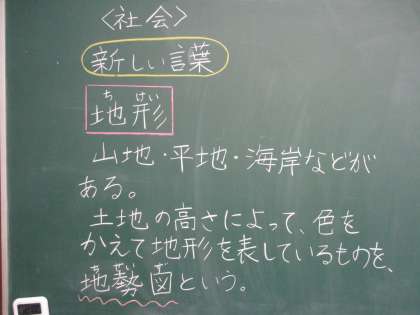 〈社会〉
新しい言葉
ちけい
地形
山地・平地・海岸などが
ある。
土地の高さによって、色を
かえて地形を表しているものを、
地勢図という。